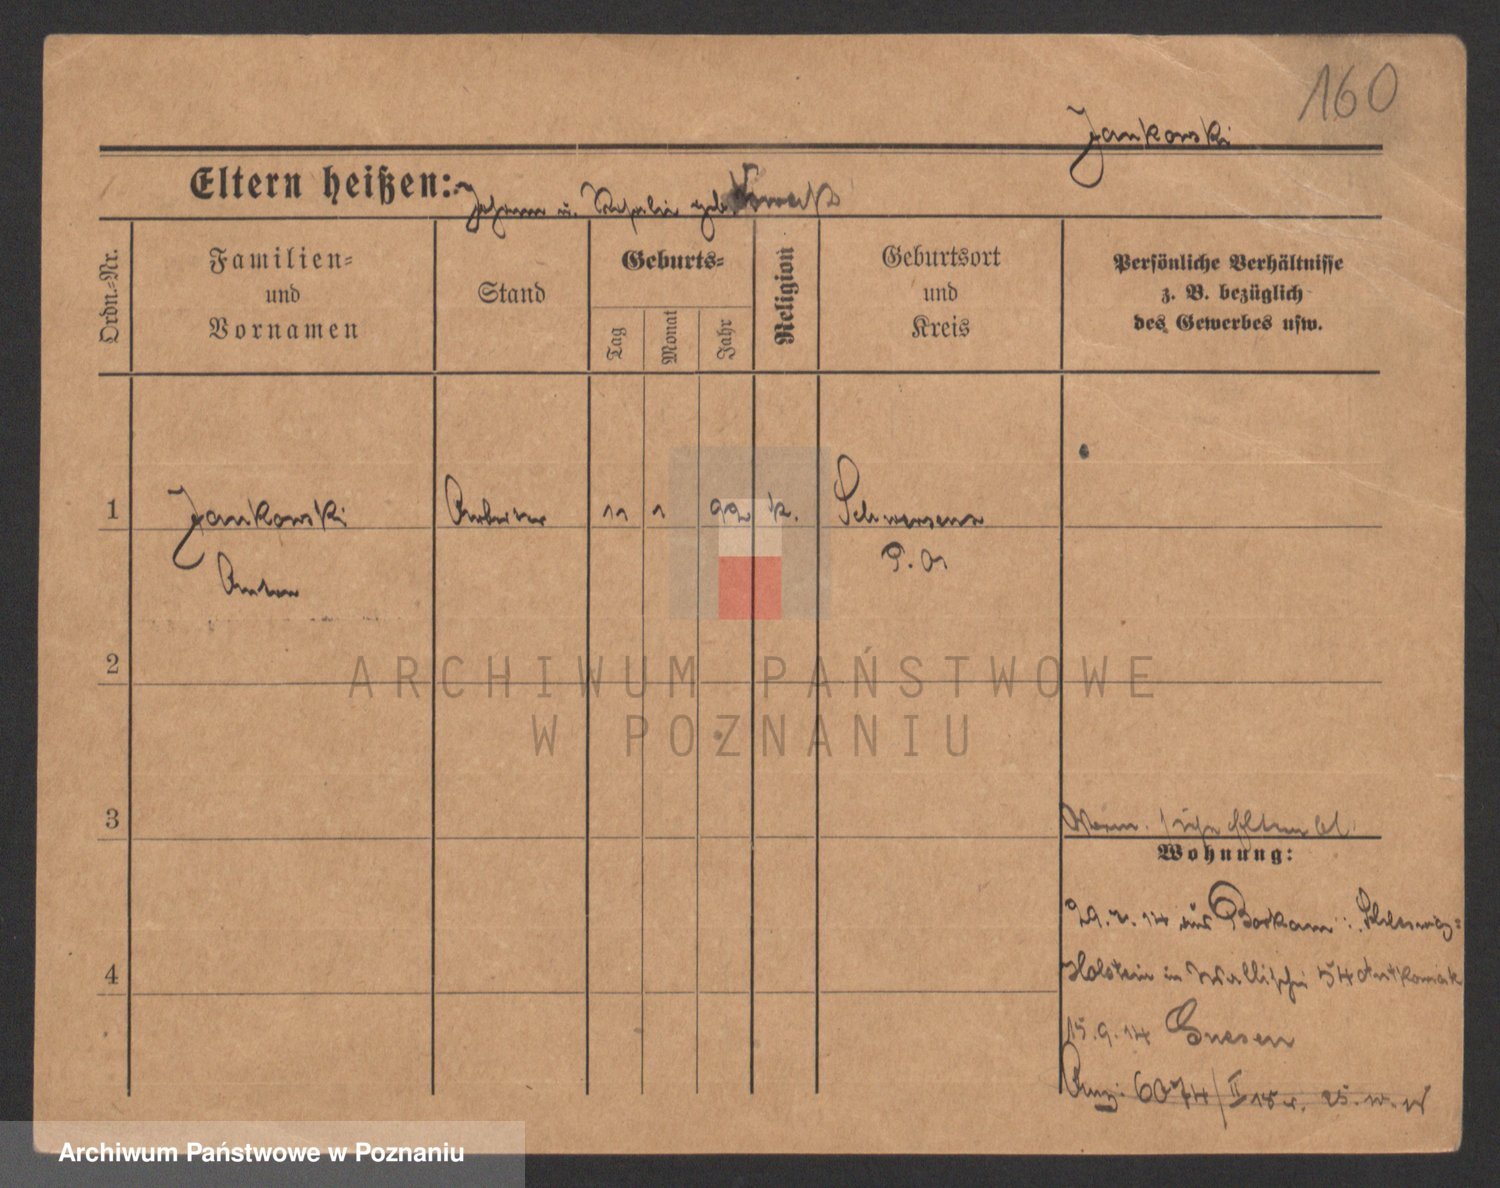 160
Jankowski
Eltern heißen: Johann u. geb.
Ordn.-Nr.
Familien- und Vornamen
Stand
Geburts-
Tag
Monat
Jahr
Religion
Geburtsort und Kreis
Persönliche Verhältnisse
z. B. bezüglich
des Gewerbes usw.
1 Jankowski Arbeiter 11 1 92 k. Schwersenz
Anton P. O.
2
ARCHIWUM PAŃSTWOWE
W POZNANIU
3
Wohnung:
29. 7. 14 aus Borkam: Schleswig-
4 Holstein in Wallischei 54
15. 9. 14 Gnesen
Anz: 6074/II
Archiwum Państwowe w Poznaniu